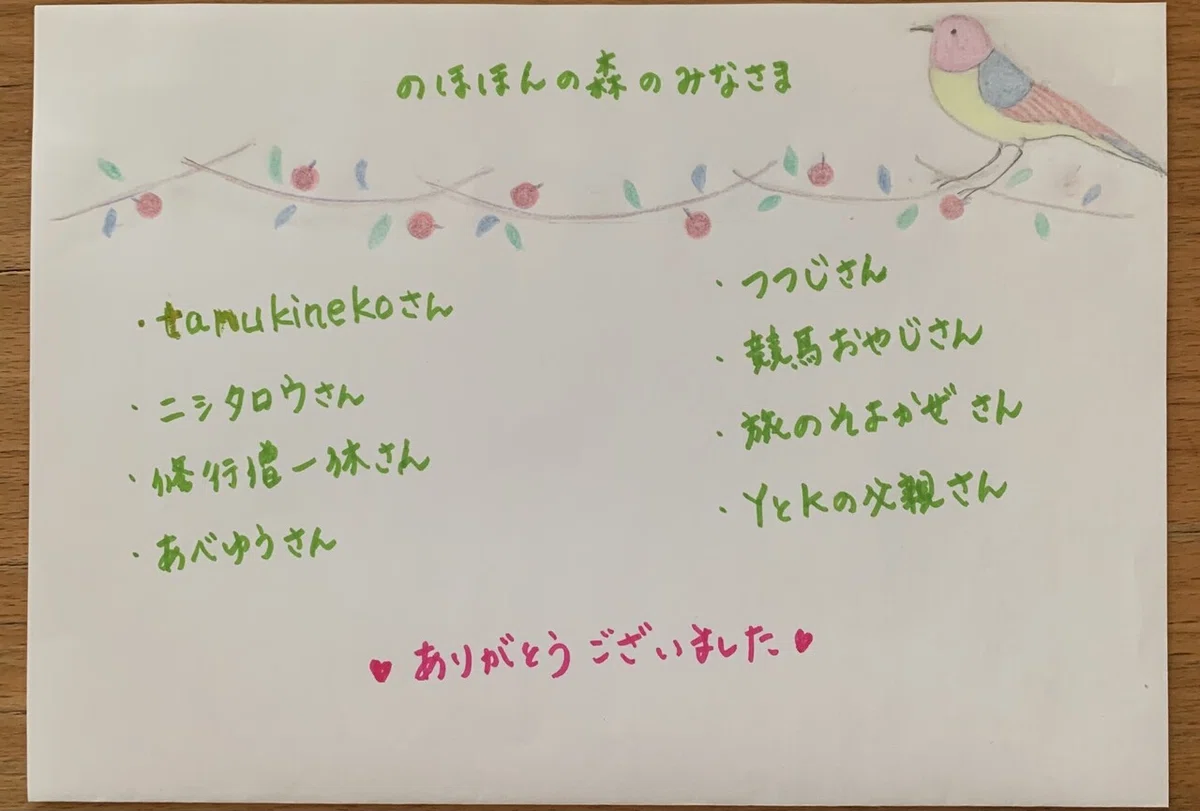 のほほんの森のみなさま
・tamukinekoさん
・ニシタロウさん
・修行僧一休さん
・あべゆうさん
・つつじさん
・競馬おやじさん
・旅のそよかぜさん
・YとKの父親さん
♥ありがとうございました♥